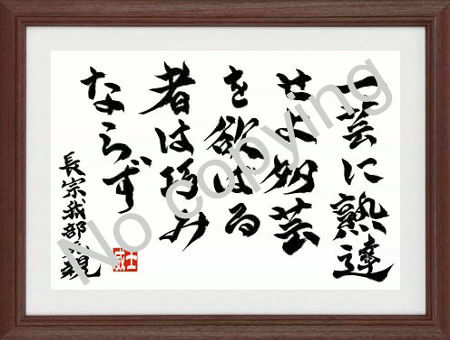 一芸に熟達
せよ多芸
を欲ばる
者は巧み
ならず
長宗我部元親
威士
No copying